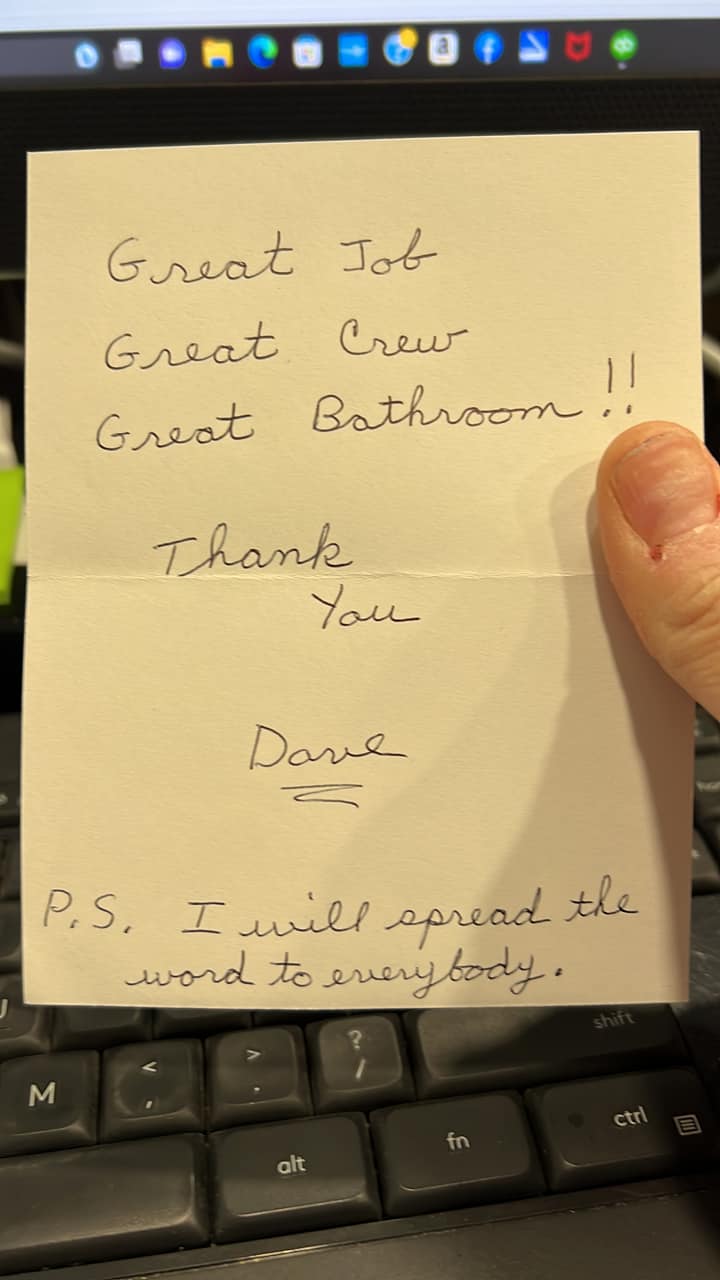 a
Great Job
Great Crew
Great Bathroom!!
Thank
You
Dave
P.S. I will spread the
word to everybody.
shift
M < , > . ? /
alt fn ctrl